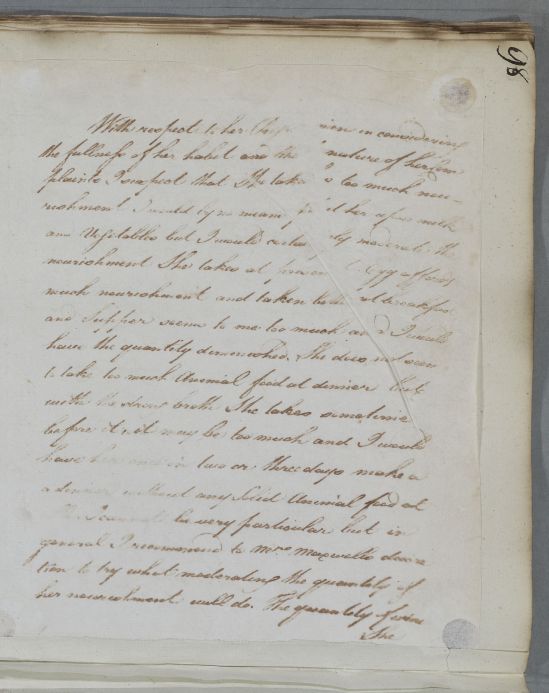 98
With respect to her in considering
the fullness of her habit and the nature of her com
plaints I suspect that She takes too much nou-
rishment I would by no means her upon milk
and Vegetables but I would certainly moderate the
nourishment She takes at present Egg affords
much nourishment and taken both at breakfast
and Supper seems to me too much and I would
have the quantity diminished. She does not seem
to take too much Animal food at dinner but
with the strong broth She takes sometimes
before it it may be too much and I would
have her once in two or three days make a
a dinner without any Solid Animal food at
I cannot be very particular but in
general I recommend to Mrs Maxwells discre
tion to try what moderating the quantity of
her nourishment will do. The quantity of wine
She